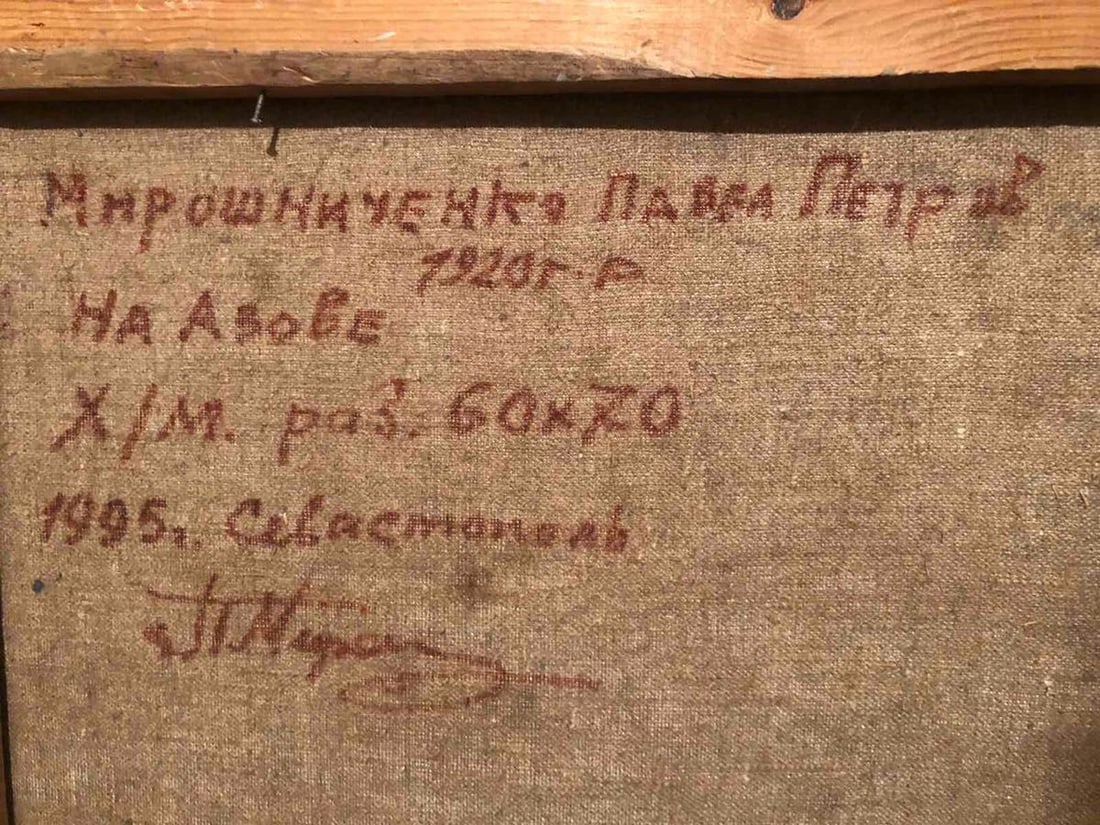 Мирошниченко Павел Петров
1920г.р
На Азове
Х/М. раз. 60х70
1995г. Севастополь